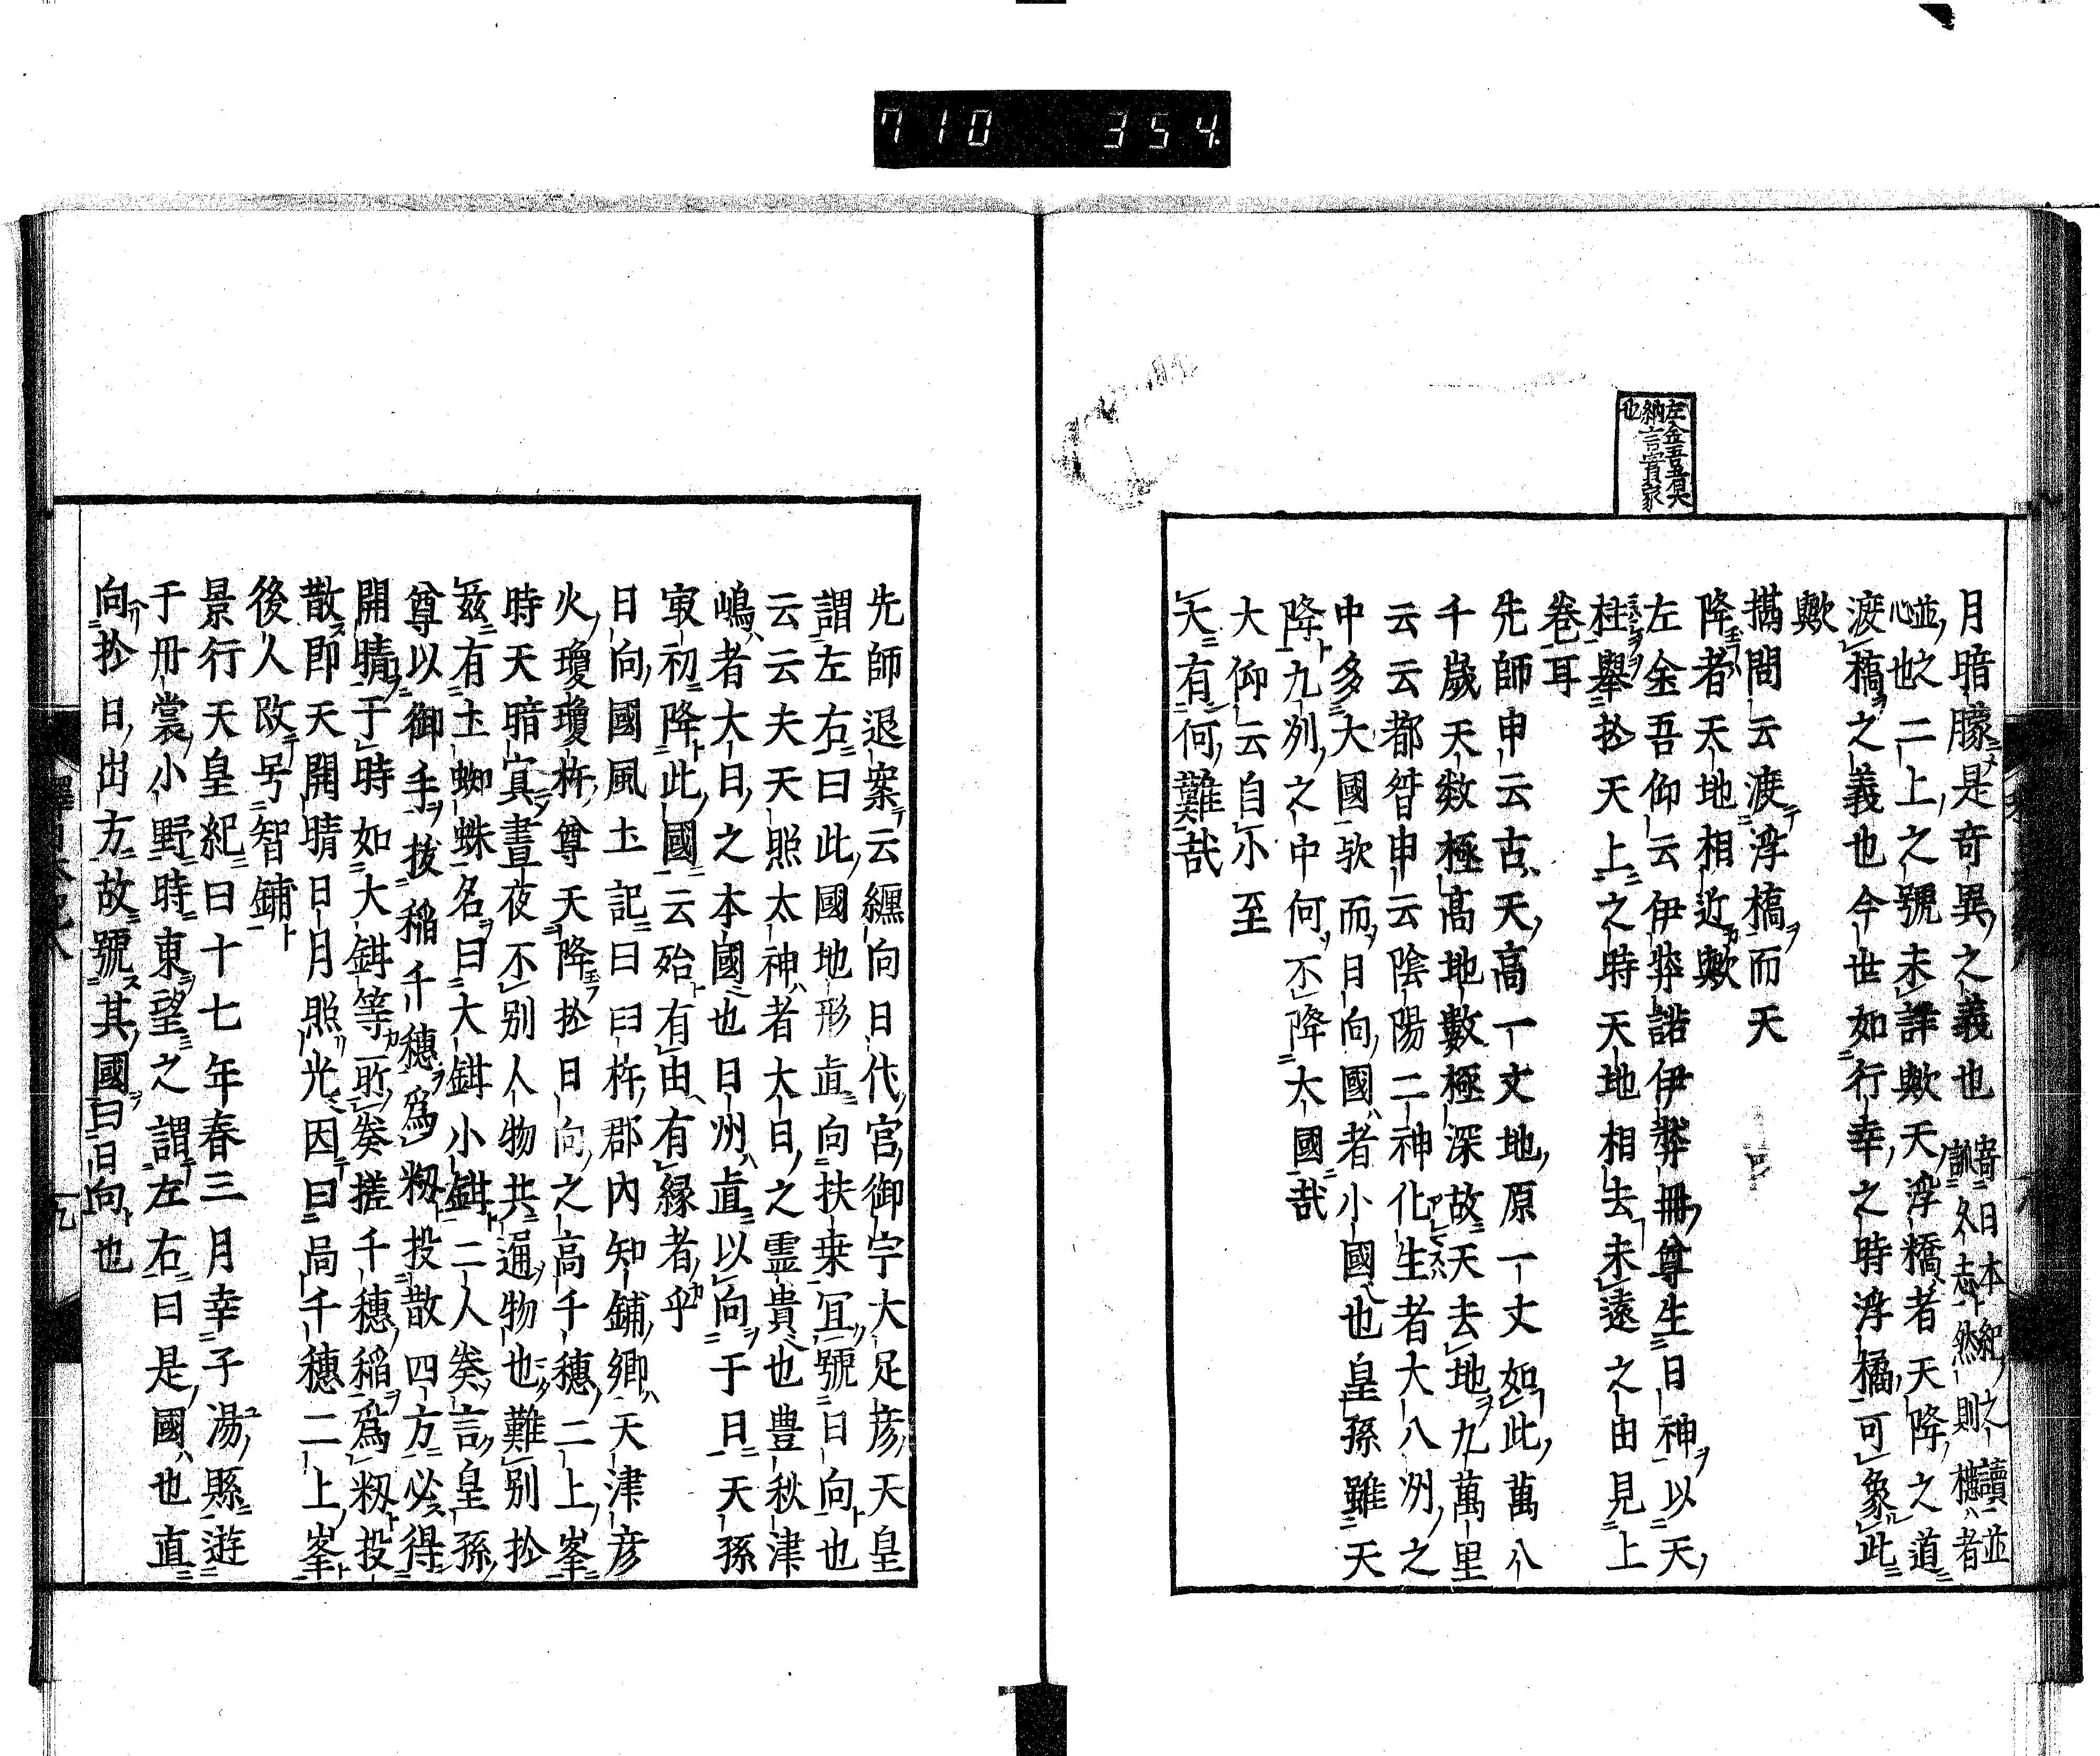 710 354
左金吾者大
納言實家
也
月暗朦是奇異之義也寄日本紀之讀並
訓久志然則槵者
並之二上之號未詳歟天浮橋者天降之道
心也
渡橋之義也今世如行幸之時浮橋可象此
歟
攝間云渡浮橋而天
降者天地相近歟
左金吾仰云伊弉諾伊弉冊尊生日神以天
柱擧於天上之時天地相去未遠之由見上
卷耳
先師申云古天高一丈地原一丈如此萬八
千歲天數極高地數極深故天去地九萬里
云云都督申云陰陽二神化生者大八洲之
中多大國欤而日向國者小國也皇孫雖天
降九州之中何不降大國哉
大仰云自小至
大有何難哉
先師退案云纏向日代宮御宇大足彥天皇
謂左右曰此國地形直向扶桒宜號日向也
云云夫天照太神者大日之霊貴也豊秋津
嶋者大日之本國也日州直以向于日天孫
㝡初降此國云殆有由有緣者乎
日向國風土記曰臼杵郡內知鋪鄉天津彥
火瓊瓊杵尊天降於日向之高千穗二上峯
時天暗冥晝夜不別人物共逎物也難別於
茲有土蜘蛛名曰大鉗小鉗二人奏言皇孫
尊以御手拔稲千穗爲籾投散四方必得
開晴于時如大鉗等所奏搓千穗稲爲籾投
散即天開晴日月照光因曰高千穗二上峯
後人改号智鋪
景行天皇紀曰十七年春三月幸子湯縣遊
于丹裳小野時東望之謂左右曰是國也直
向於日出方故號其國曰日向也
九